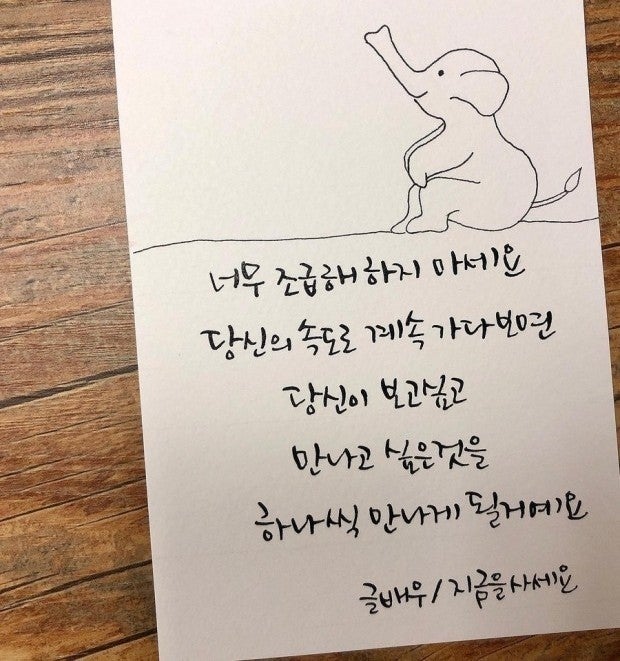 너무 조급해 하지 마세요
당신의 속도로 계속 가다보면
당신이 보고싶고
만나고 싶은것을
하나씩 만나게 될거예요
글배우/지금을사세요